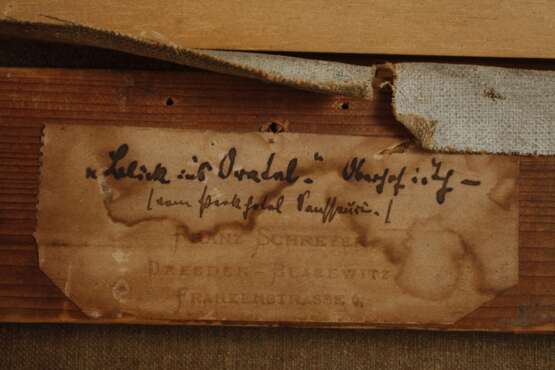 „Blick ins Gratal.“ Oberhof i. Th –
/ vom Parkhotel Sanssouci. /
FRANZ SCHREYER
DRESDEN-BLASEWITZ
FRANKENSTRASSE